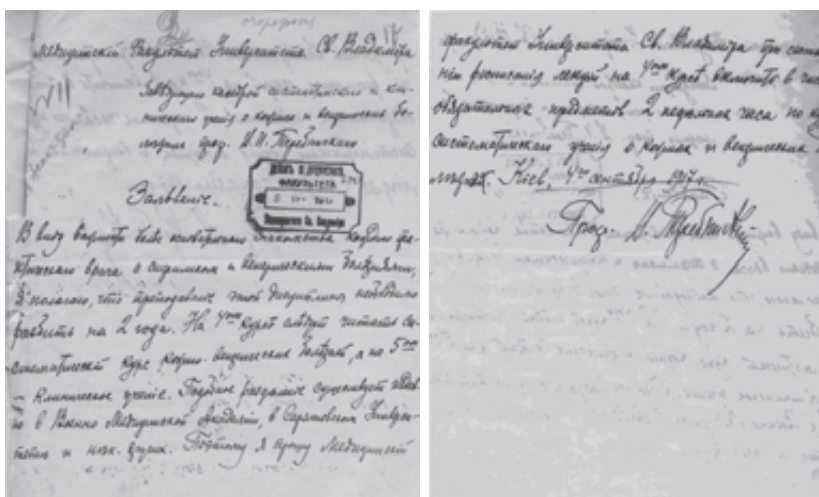 Медицинский Факультет Университета Св. Владимира
Заведующего кафедрой систематического и кли-
нического учения о кожных и венерических бо-
лезнях проф.
Заявление.
ДЕКАНЪ МЕДИЦИНСКАГО
ФАКУЛЬТЕТА
Университета Св. Владимира
В виду важности более основательного знакомства каждого пра-
ктического врача с сифилисом и венерическими болезнями,
я полагаю, что преподавание этой дисциплины необходимо
разбить на 2 года. На 4ом курсе следует читать си-
стематический курс кожно-венерических болезней, а на 5ом
– клиническое учение. Подобное разделение существует
в Военно Медицинской Академии, в Саратовском Универси-
тете и нек. других. Поэтому я прошу Медицинский
факультет Университета Св. Владимира при составле-
нии расписания лекций на 4ом курсе включить в число
обязательных предметов 2 недельных часа по
систематическому учению о кожных и венерических
Киев, 4го сентября 1917 г.
Проф.